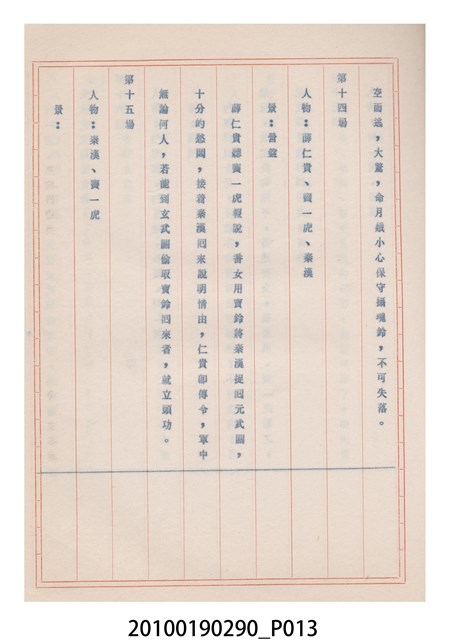 空而逃，大驚，命月娥小心保守攝魂鈴，不可失落。
第十四場
人物：薛仁貴、竇一虎、秦漢
景：營盤
薛仁貴聽竇一虎報說，番女用寶鈴將秦漢捉回元武關，
十分的愁悶，接着秦漢回來說明情由，仁貴即傳令，軍中
無論何人，若能到玄武關偷取寶鈴回來者，就立頭功。
第十五場
人物：秦漢、竇一虎
景：
20100190290_P013